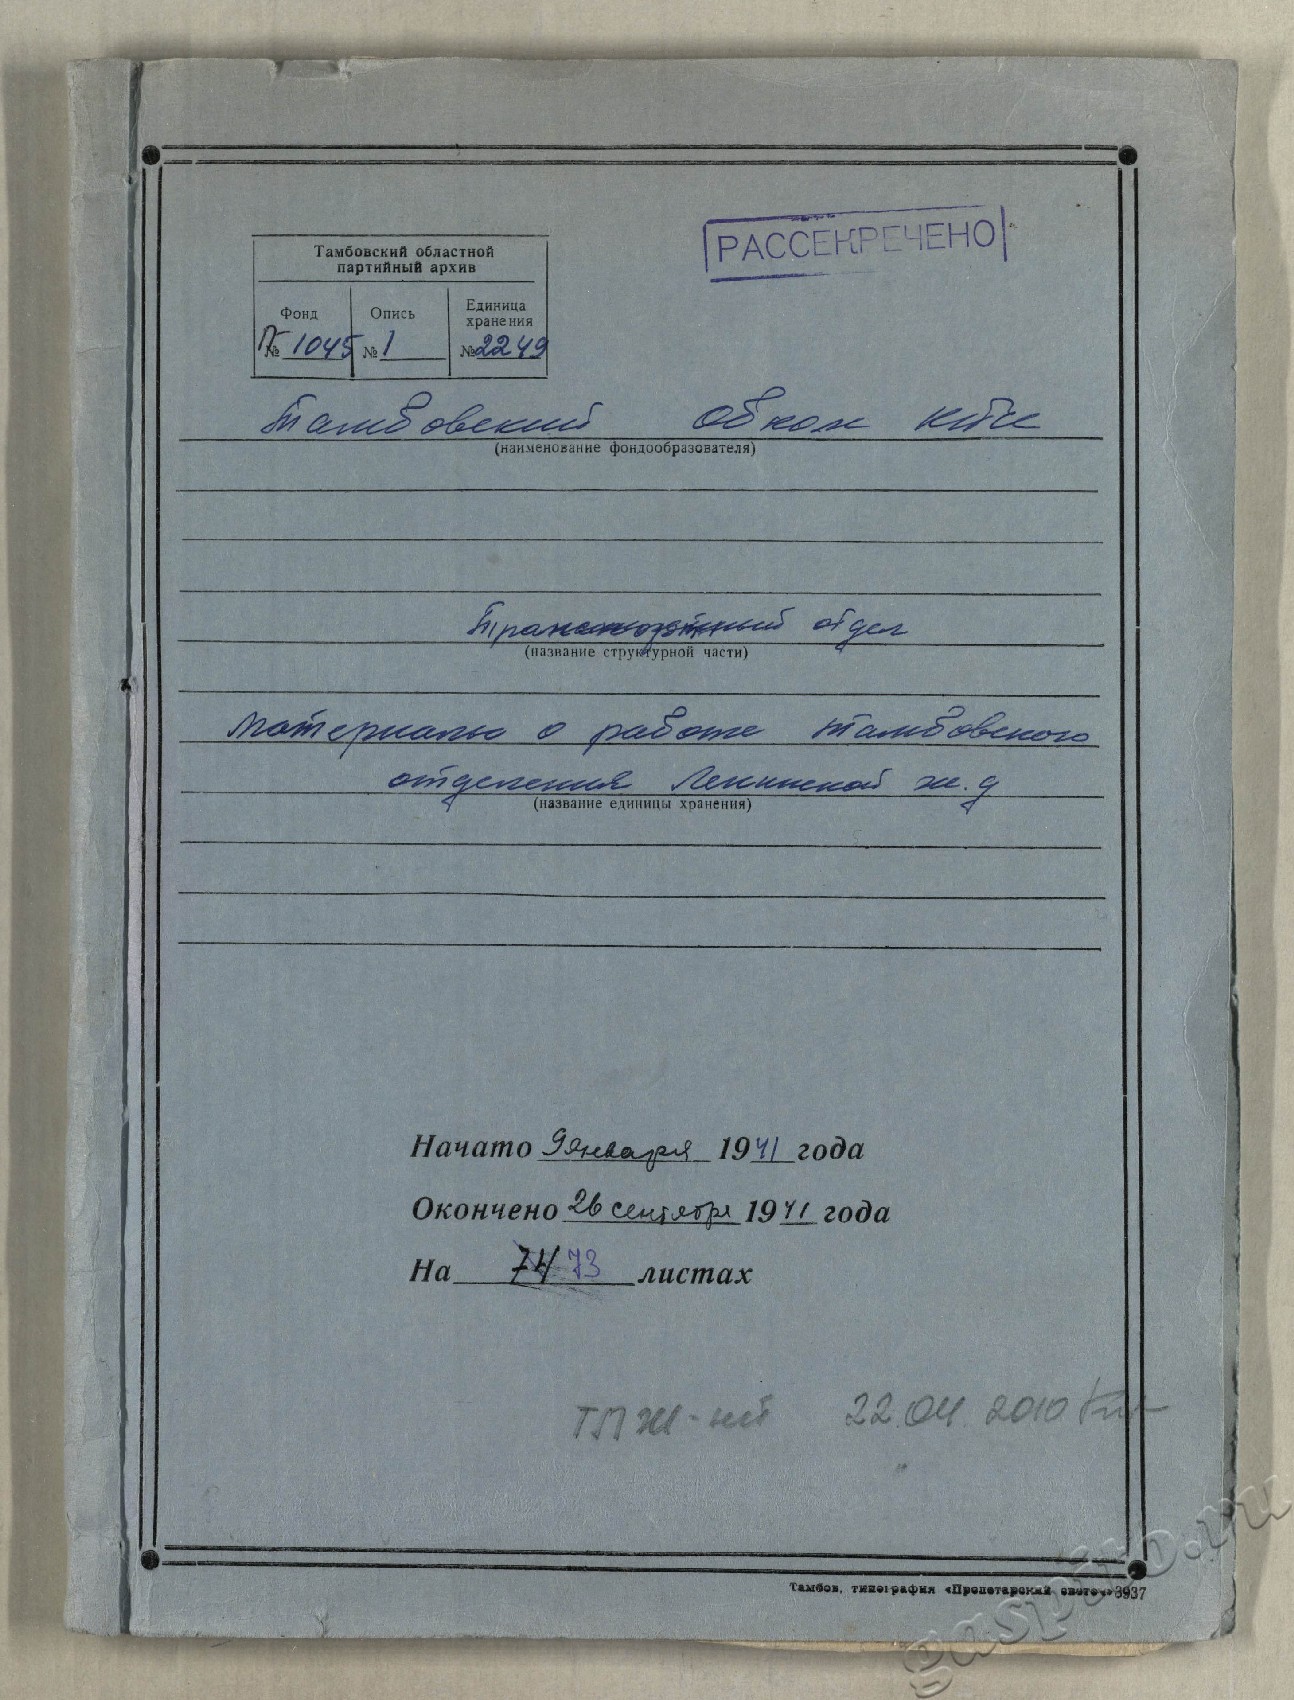 РАССЕКРЕЧЕНО
Тамбовский областной
партийный архив
Фонд Опись Единица хранения
П-№ 1045 № 1 № 2249
Тамбовский обком КПСС
(наименование фондообразователя)
Транспортный отдел
(название структурной части)
Материалы о работе Тамбовского
отделения Ленинской ж.д
(название единицы хранения)
Начато 9 января 1941 года
Окончено 26 сентября 1941 года
На 74 73 листах
22.04.2010
Тамбов, типография «Пролетарский светоч» 3937
gaspito.ru